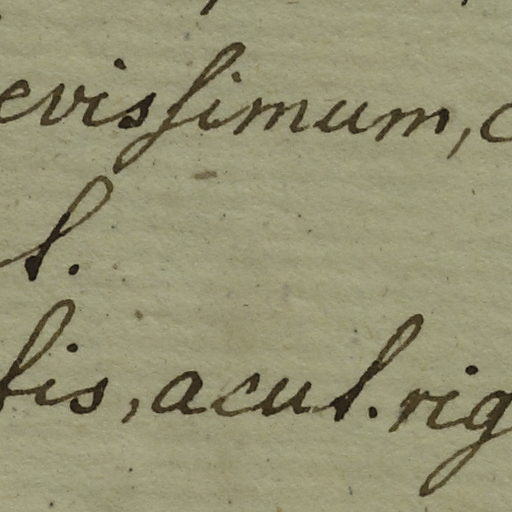 evissimum, c
l.
lis, acul. rig